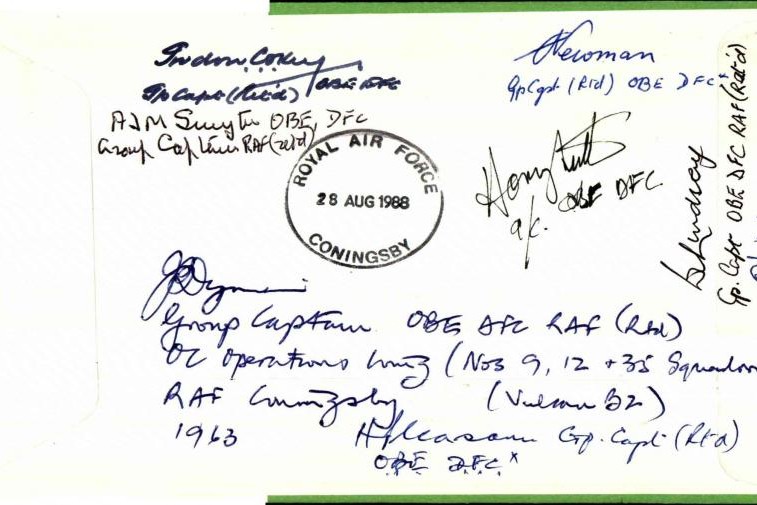 OBE DFC
Gp Capt (Ret'd)
Newman
Gp Capt (Rtd) OBE DFC*
AJM Smyth OBE, DFC
Group Captain RAF (retd)
ROYAL AIR FORCE
28 AUG 1988
CONINGSBY
Harry
OBE DFC
a/c.
Lindsay
Gp. Capt OBE DFC RAF (Ret'd)
Group Captain OBE AFC RAF (Rtd)
OC Operations Wing (Nos 9, 12 + 35 Squadron
RAF Coningsby (Vulcan B2)
1963
Gp. Capt (Rtd)
OBE DFC*